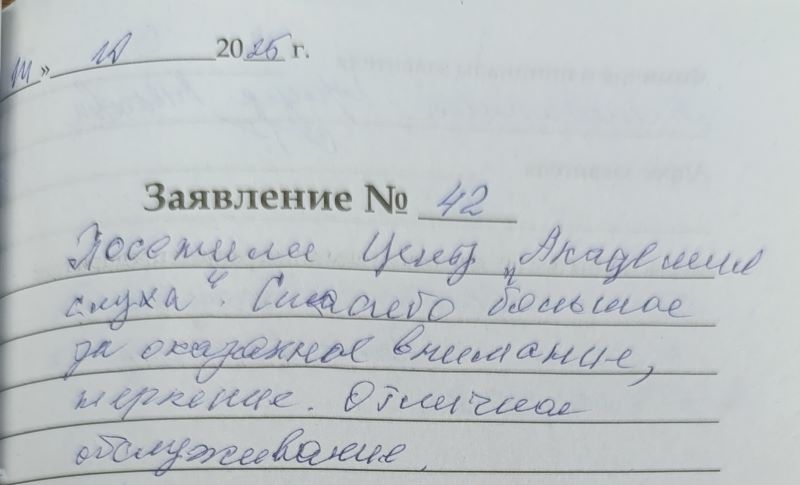 » 2025 г.
Заявление № 42
Посетили Центр „Академия
слуха“. Спасибо большое
за оказанное внимание,
терпение. Отличное
обслуживание.